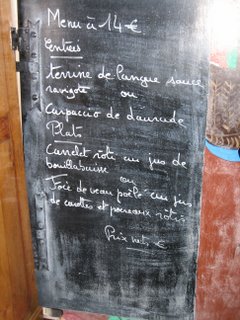 Menu à 14 €
Entrées
terrine de langue sauce
ravigote ou
Carpaccio de daurade
Plats
Carrelet rôti un jus de
bouillabaisse
ou
Foie de veau poêlé un jus
de carottes et poireaux rôtis
Prix nets €